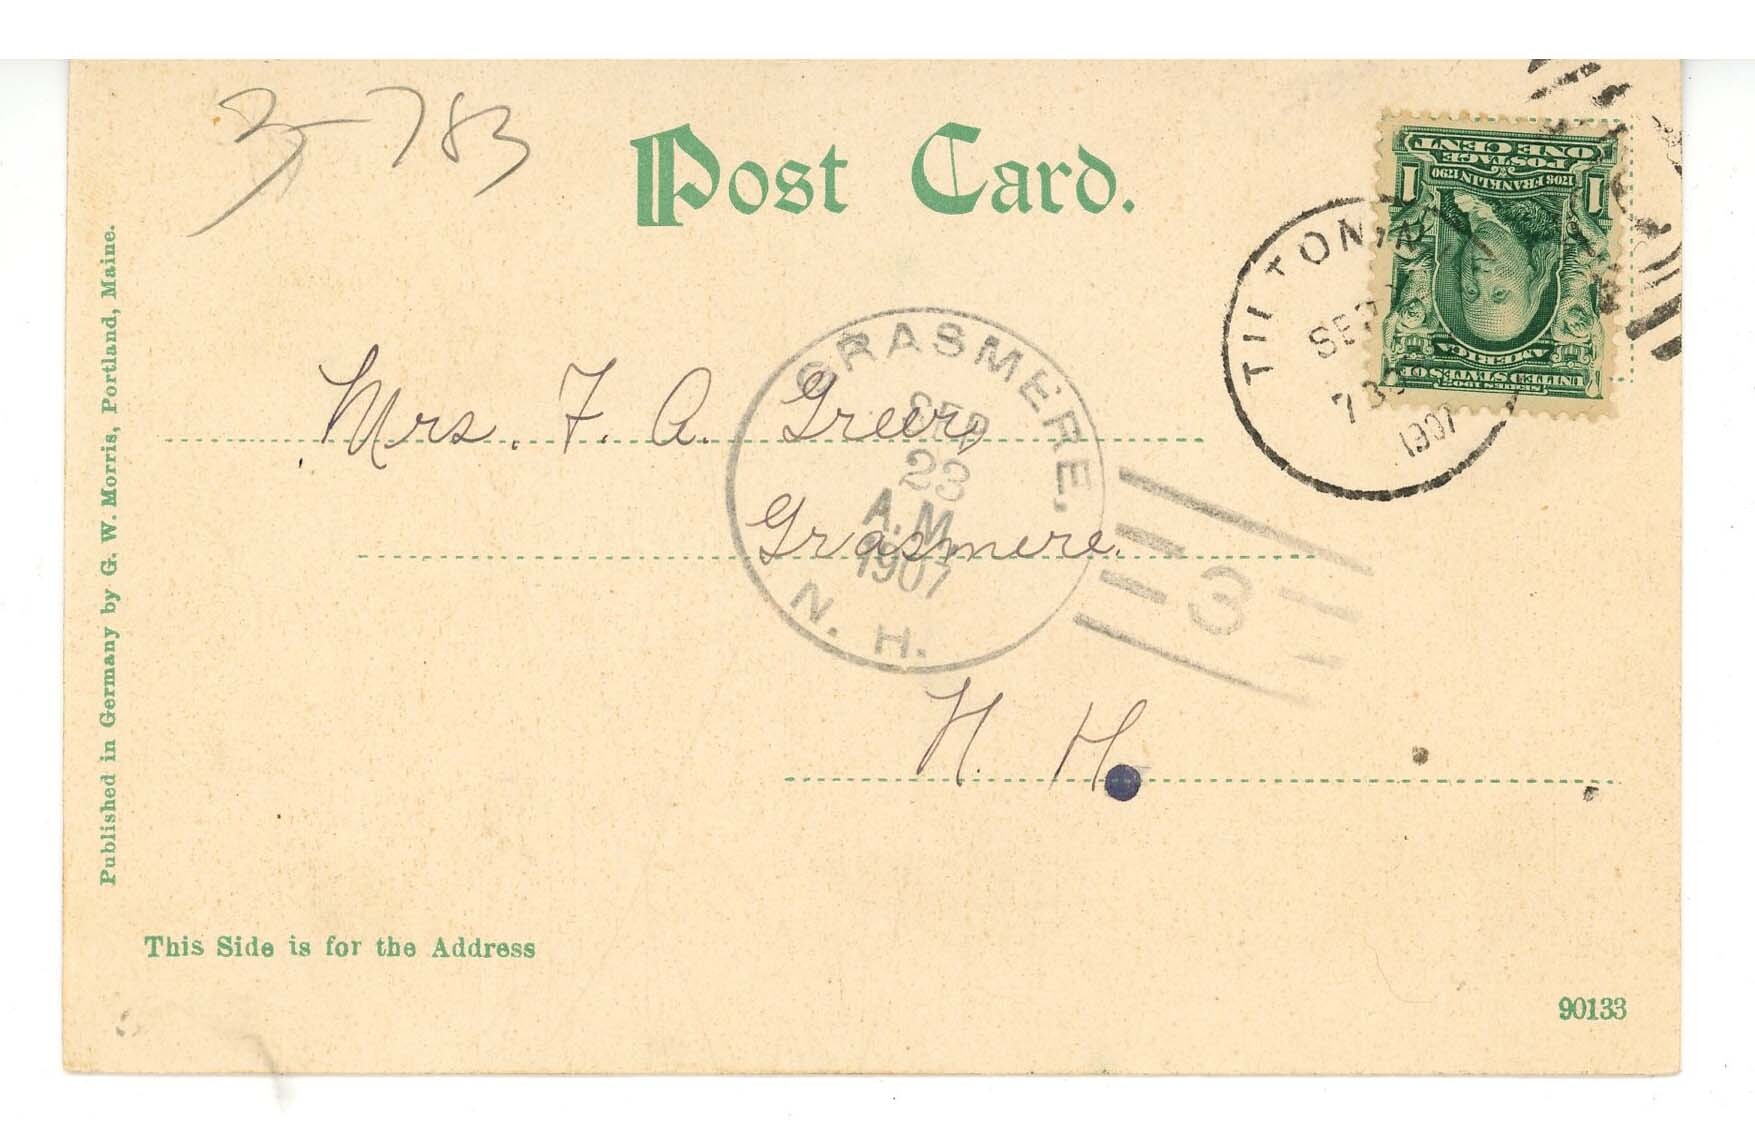 3-783
Post Card.
TILTON, N.
SEP
7 30
1907
ONE CENT
POSTAGE
1706 FRANKLIN 1790
1 1
SERIES 1902
UNITED STATES OF
AMERICA
GRASMERE,
SEP
23
A.M.
1907
N. H.
3
Mrs. F. A. Greer,
Grasmere.
N. H.
Published in Germany by G. W. Morris, Portland, Maine.
This Side is for the Address
90133